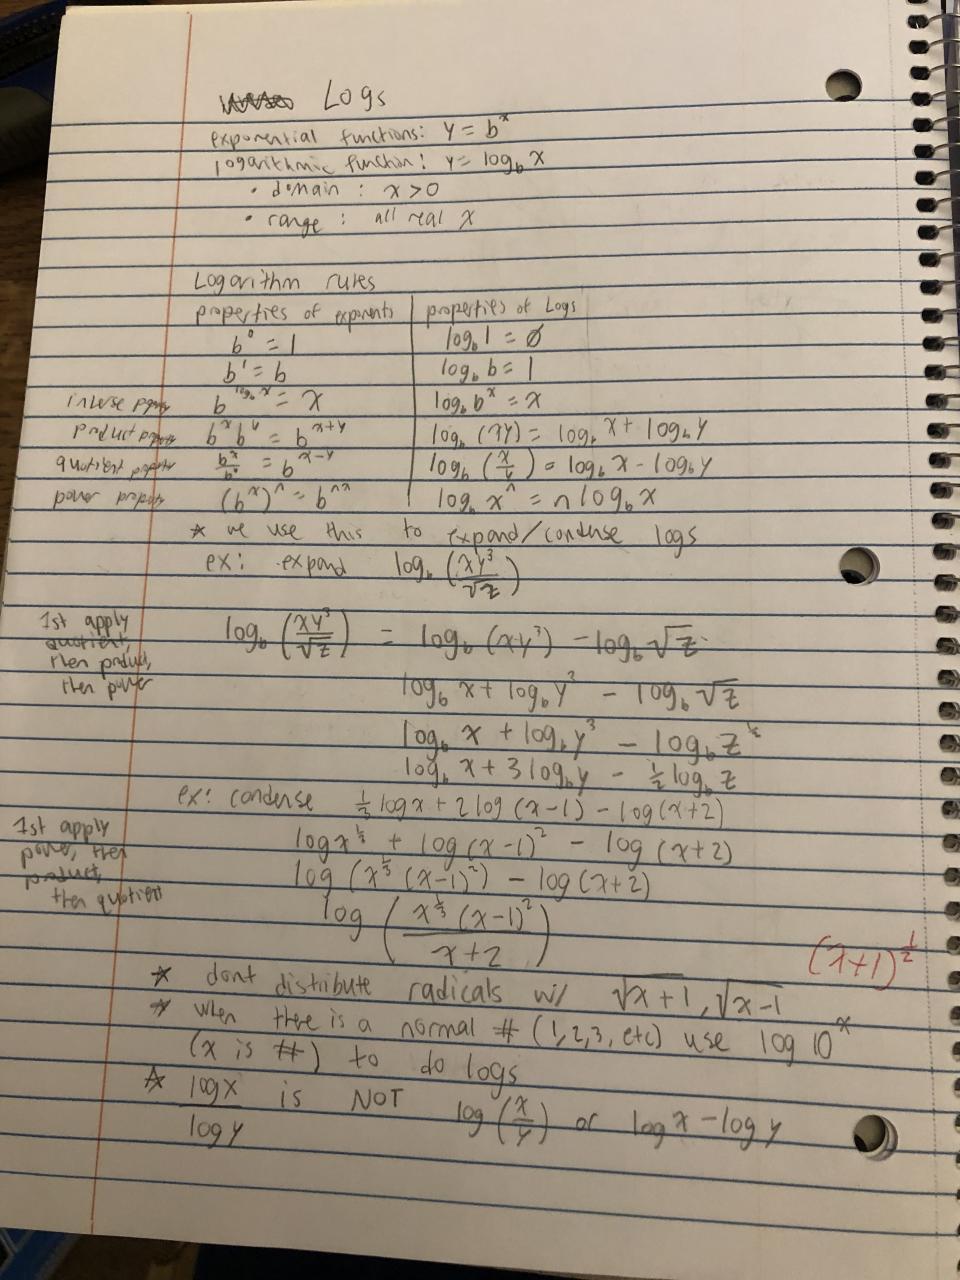 Logs
exponential functions: y = b^x
logarithmic function: y = log_b x
• domain : x > 0
• range : all real x
Logarithm rules
properties of exponents | properties of Logs
b^0 = 1 | log_b 1 = 0
b^1 = b | log_b b = 1
inverse b^(log_b x) = x | log_b b^x = x
product b^x b^y = b^(x+y) | log_b (xy) = log_b x + log_b y
quotient b^x/b^y = b^(x-y) | log_b (x/y) = log_b x - log_b y
power (b^x)^n = b^(xn) | log_b x^n = n log_b x
* we use this to expand/condense logs
ex: expand log_b (xy^3/√z)
1st apply
quotient,
then product,
then power
log_b (xy^3/√z) = log_b (xy^3) - log_b √z
log_b x + log_b y^3 - log_b √z
log_b x + log_b y^3 - log_b z^(1/2)
log_b x + 3 log_b y - 1/2 log_b z
ex: condense 1/3 log x + 2 log (x-1) - log (x+2)
1st apply
power, then
product,
then quotient
log x^(1/3) + log (x-1)^2 - log (x+2)
log (x^(1/3) (x-1)^2) - log (x+2)
log (x^(1/3) (x-1)^2 / x+2)
(x+1)^(1/2)
* dont distribute radicals w/ √x+1, √x-1
* when there is a normal # (1,2,3, etc) use log 10^x
(x is #) to do logs
* log x / log y is NOT log (x/y) or log x - log y